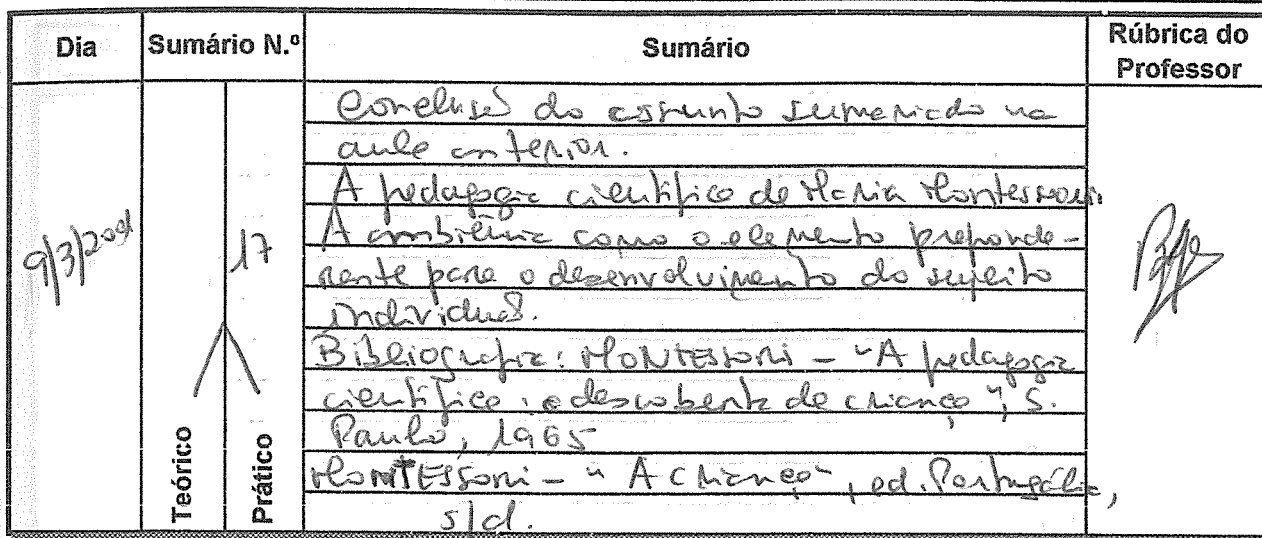 Dia Sumário N.º Sumário Rúbrica do Professor
9/3/2001
17
Teórico
Prático
Conclusão do assunto sumariado na
aula anterior.
A pedagogia científica de Maria Montessori.
A ambiência como o elemento preponde-
rante para o desenvolvimento do sujeito
individual.
Bibliografia: MONTESSORI - "A pedagogia
científica: a descoberta da criança", S.
Paulo, 1965
MONTESSORI - "A criança", ed. Portugália,
s/d.